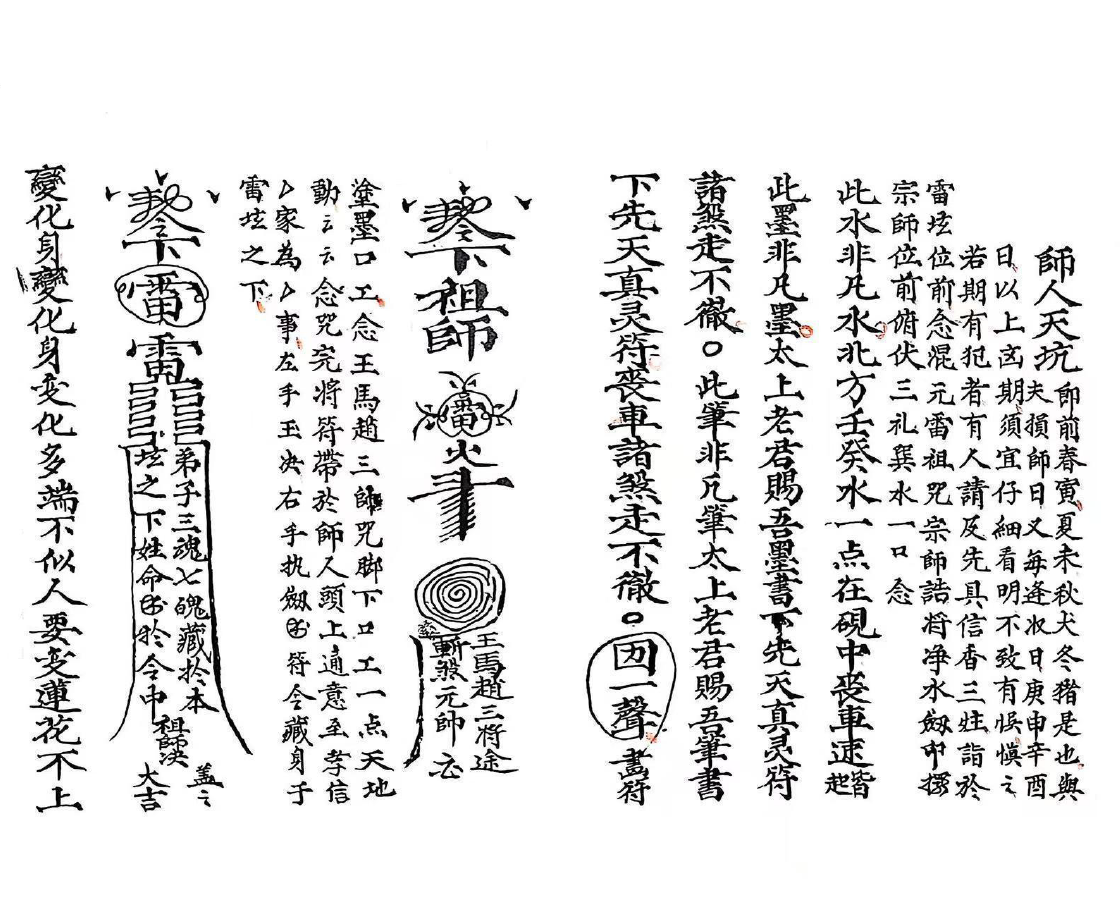 師人天坑即前春寅夏未秋犬冬猪是也與
夫損師日又每逢收日庚申辛酉
日以上凶期須宜仔細看明不致有悞慎之
若期有犯者有人請及先具信香三炷詣於
雷坛位前念混元雷祖咒宗師誥将净水劔印
宗師位前俯伏三礼巽水一口念
此水非凡水北方壬癸水一点在硯中丧車速皆起
此墨非凡墨太上老君賜吾墨書下先天真灵符
諸煞走不徹○此筆非凡筆太上老君賜吾筆書
下先天真灵符丧車諸煞走不徹○
一聲畫符
下祖師
雷火
王馬趙三将
斬煞元帥
塗墨口工念王馬趙三帥咒脚下口工一点天地
動云云念咒完将符帶於師人頭上通意至孝信
厶家為厶事左手玉决右手执劔符令藏身于
雷坛之下
下雷雷
弟子三魂七魄藏於本
坛之下姓命於令中
祖師决
盖之
大吉
變化身變化身变化多端不似人要变蓮花不上